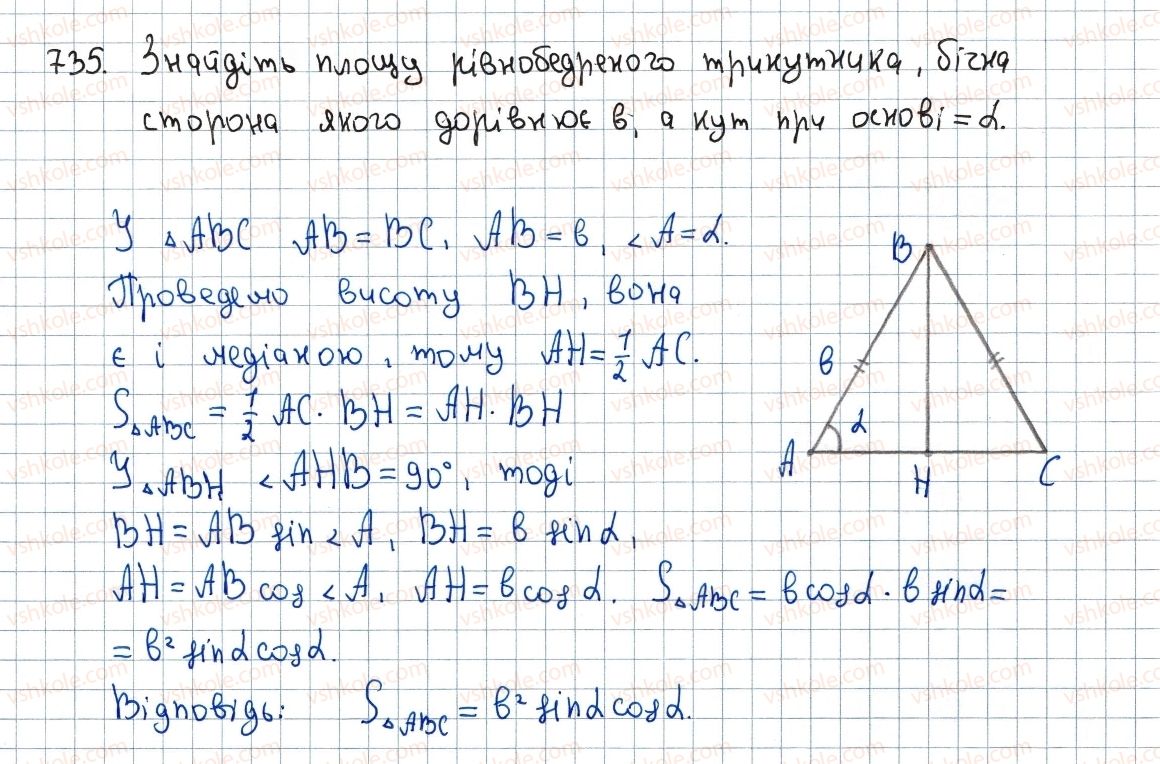 735. Знайдіть площу рівнобедреного трикутника, бічна
сторона якого дорівнює в, а кут при основі = α.
У △ABC AB = BC, AB = в, <A = α.
Проведемо висоту BH, вона
є і медіаною, тому AH = 1/2 AC.
S△ABC = 1/2 AC · BH = AH · BH
У △ABH <AHB = 90°, тоді
BH = AB sin <A, BH = в sin α,
AH = AB cos <A, AH = в cos α. S△ABC = в cos α · в sin α =
= в² sin α cos α.
Відповідь: S△ABC = в² sin α cos α.
B
в
α
A
H
C
vshkole.com